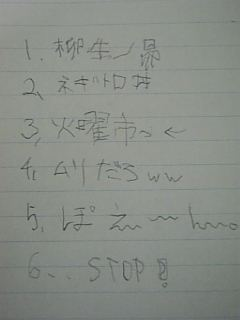 1. 柳生ノ昴
2、ネギトロ丼
3, 火曜市っ←
4, ムリだろww
5、ぽえ〜〜
6、、STOP!